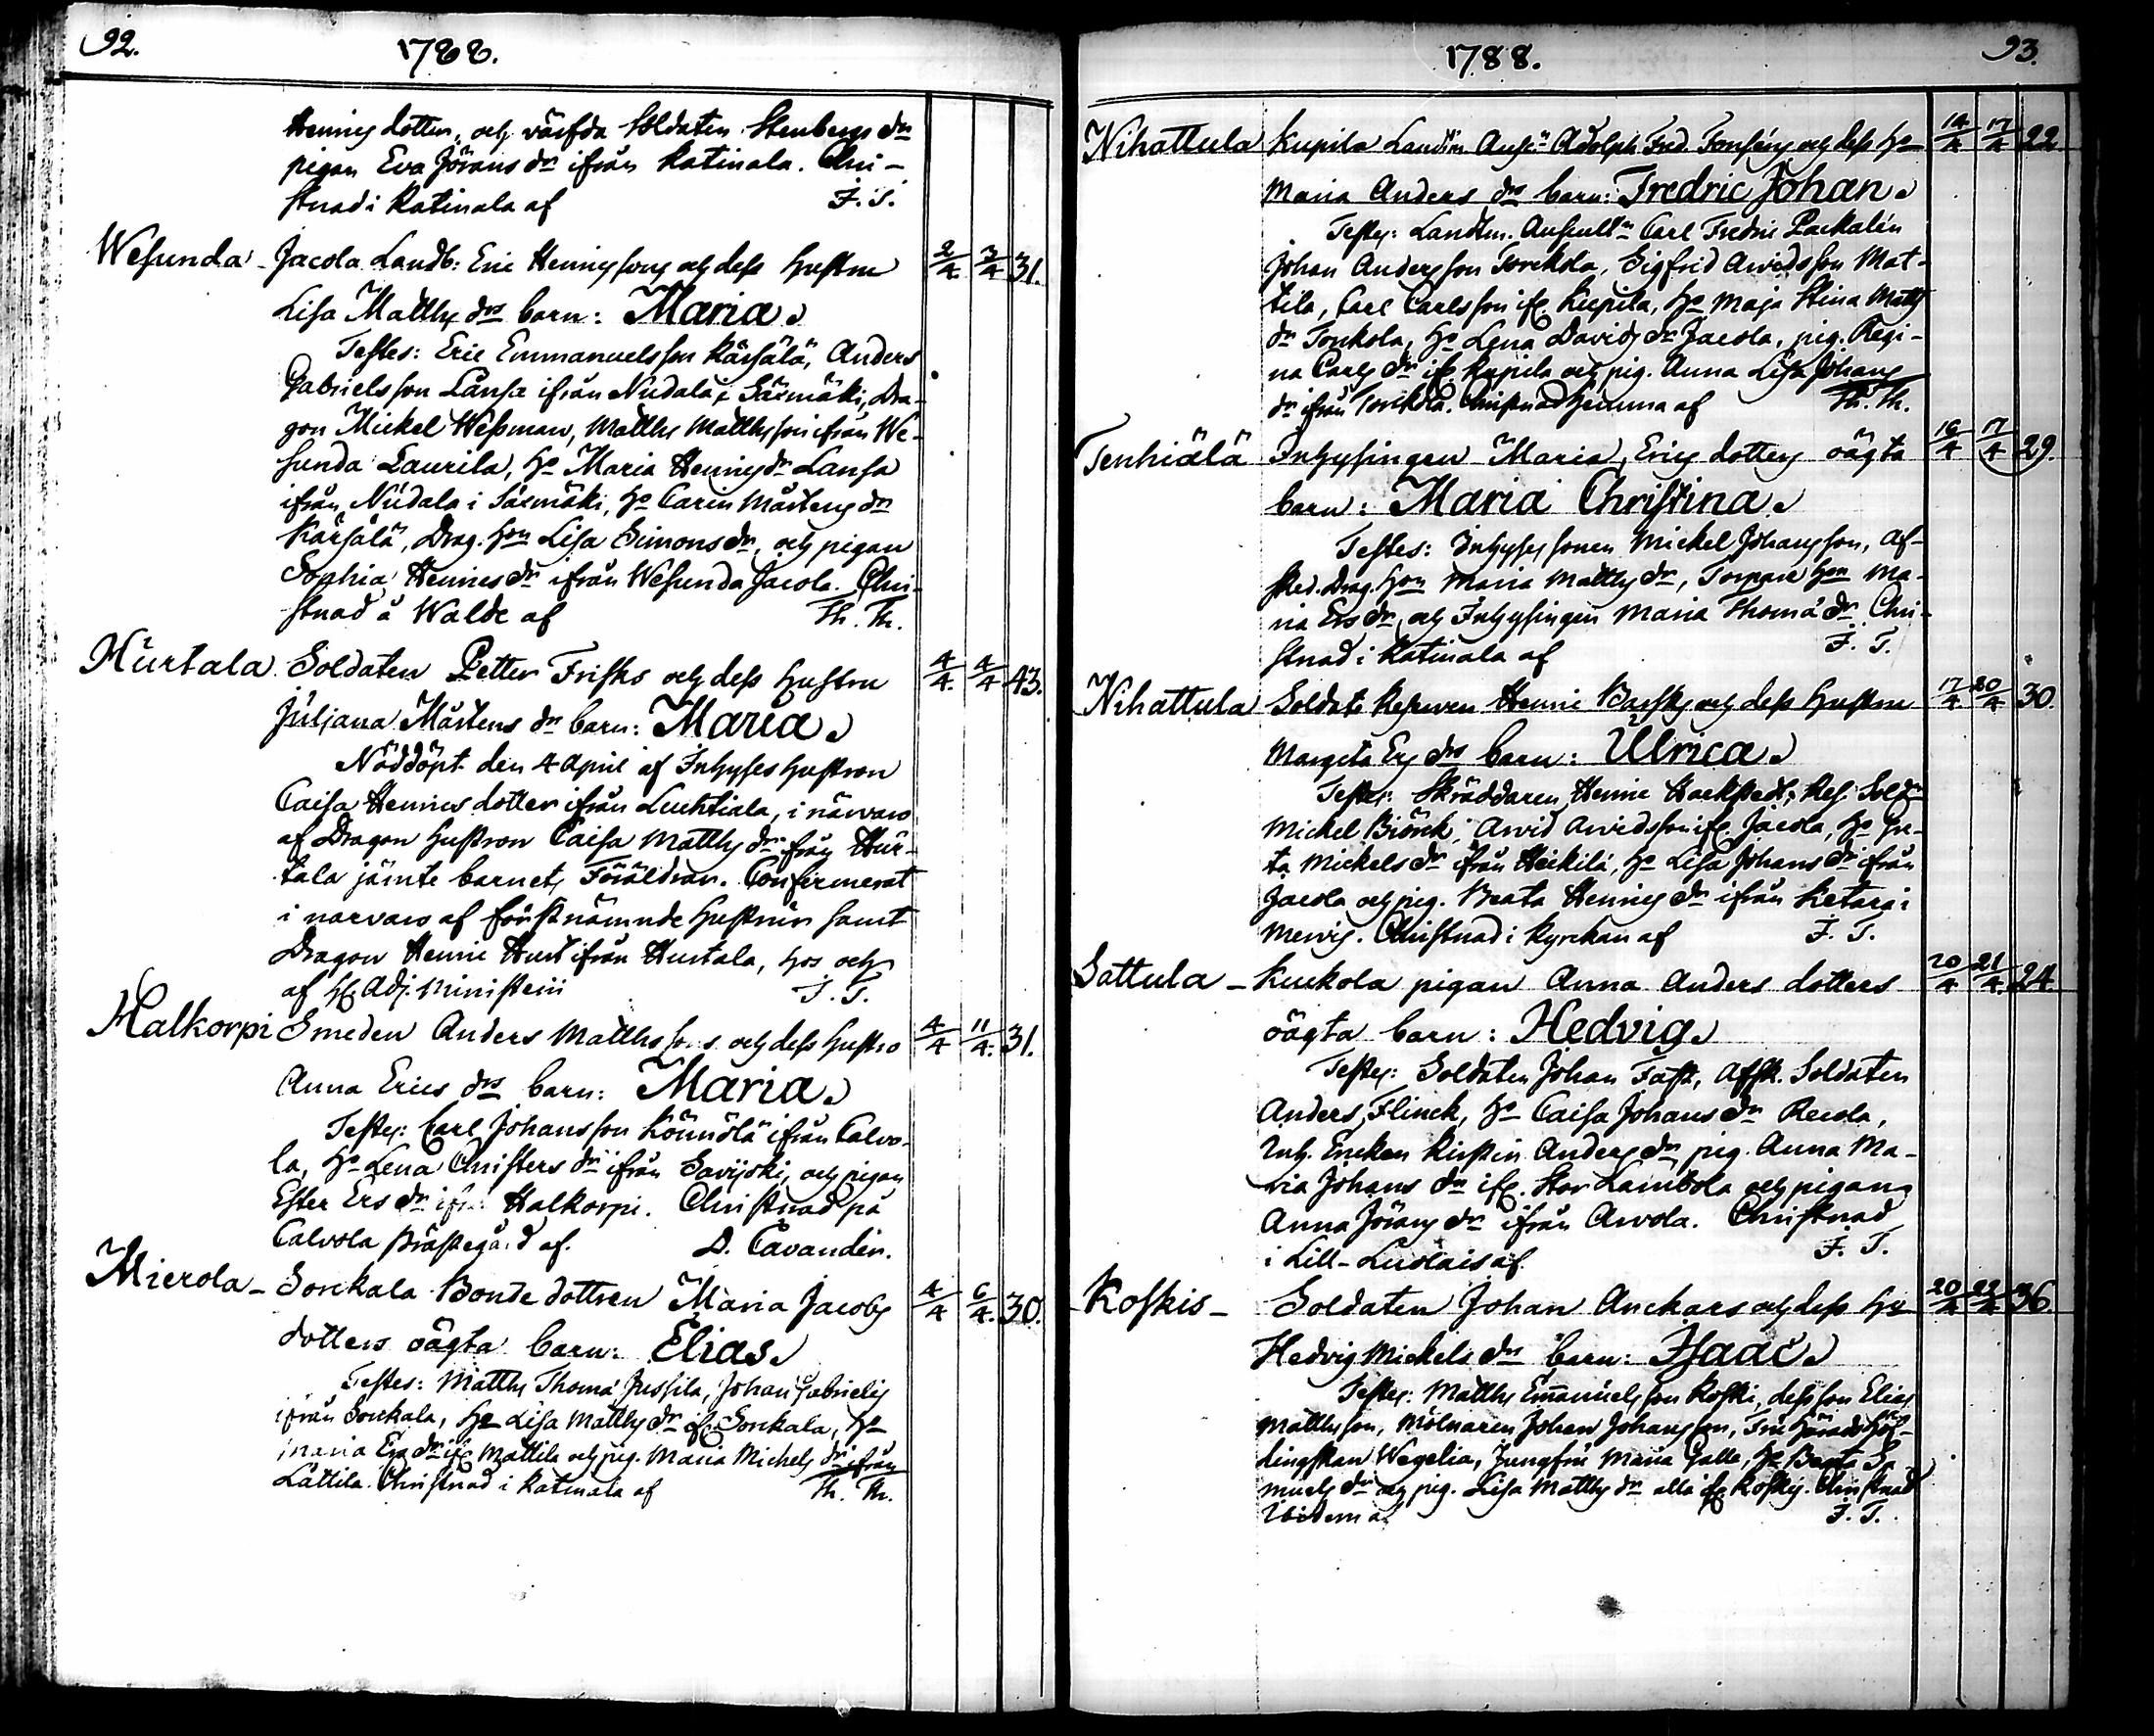 92.
1788.
Hennicsdotter, och värfda Soldaten Stenbergs dr
pigan Eva Jörans dr ifrån Katinala. Chri-
stnad i Katinala af F. T.
Wesunda - Jacola Landb: Eric Hennicssons och dess hustru 2/4 3/4 31.
Lisa Matths drs barn: Maria.
Testes: Eric Emmanuelsson Kärsälä, Anders
Gabrielsson Lansa ifrån Nudala i Säxmäki, Dra-
gon Mickel Wessman, Matths Matthsson ifrån We-
sunda Laurila, Ho Maria Hennics dr Lansa
ifrån Nudala i Säxmäki, Ho Carin Mårtens dr
Kärsälä, Drag. Hon Lisa Simons dr, och pigan
Sophia Hennics dr ifrån Wesunda Jacola. Chri-
stnad å Walde af Th. Th.
Hurtala Soldaten Petter Frisks och dess hustru 4/4. 4/4 43.
Juliana Mårtens dr barn: Maria.
Nöddöpt den 4 April af Inhyses hustron
Caisa Hennics dotter ifrån Luchtiala, i närvaro
af Dragon hustron Caisa Matths dr ifrån Hur-
tala jämte barnets Föräldrar. Confirmerat
i narvaro af förstnämnde hustrur samt
Dragon Henric Hurt ifrån Hurtala, hos och
af H. Adj. Ministerii F. T.
Halkorpi Smeden Anders Matthssons och dess hustro 4/4 11/4. 31.
Anna Erics drs barn: Maria.
Testes: Carl Johansson Könnölä ifrån Calvo-
la, Ho Lena Christers dr ifrån Savijoki, och pigan
Ester Ers dr ifrån Halkorpi. Christnad på
Calvola Prästegård af. D. Cavander.
Mierola - Sorckala Bonde dottren Maria Jacobs 4/4 6/4. 30.
dotters oägta barn: Elias.
Testes: Matths Thomæ Jussila, Johan Gabriels
ifrån Sorckala, Ho Lisa Matths dr ifr. Sorckala, Ho
Maria Ers dr ifr. Mattila och pig. Maria Michels dr ifrån
Lattila. Christnad i Katinala af Th. Th.
93.
1788.
Nihattula Kupila Landtm. Ausc. Adolph Fred. och dess Ho 14/4 17/4 22
Maria Anders drs barn: Fredric Johan.
Testes: Landtm. Auscult. Carl Fredric Packalén
Johan Andersson Torckola, Sigfrid Arvidsson Mat-
tila, Carl Carlsson ifr. Kupila, Ho Maja Stina Matths
dr Torckola, Ho Lena Davids dr Jacola, pig. Regi-
na Carls dr ifr Kupila och pig. Anna Lisa Johans
dr ifrån Torckola. Christnad hemma af Th. Th.
Tenhiälä Inhysingen Maria Erics dotters oägta 16/4 17/4 29.
barn: Maria Christina.
Testes: Inhyses sonen Mickel Johansson, af-
sked. Drag. Hon Maria Matths dr, Torpare Hon Ma-
ria Ers dr, och Inhysingen Maria Thomæ dr. Chri-
stnad i Katinala af F. T.
Nihattula Soldats Reserven Henric Barsks och dess hustru 17/4 20/4 30.
Margeta Ers drs barn: Ulrica.
Testes: Skräddaren Henric Hackstedt, Res. Soldn
Mickel Biörck, Arvid Arvidsson ifr. Jacola, Ho Gre-
ta Mickels dr ifrån Heikilä, Ho Lisa Johans dr ifrån
Jacola och pig. Beata Hennics dr ifrån Ketara i
Mervis. Christnad i Kyrckan af F. T.
Sattula - Kuckola pigan Anna Anders dotters 20/4 21/4. 24
oägta barn: Hedvig.
Testes: Soldaten Johan Fast, Affsk. Soldaten
Anders Flinck, Ho Caisa Johans dr Recola,
Inh. Enckan Kirstin Anders dr pig. Anna Ma-
ria Johans dr ifr. Stor Lambola och pigan
Anna Jörans dr ifrån Arvola. Christnad
i Lill-Luolais af F. T.
Koskis - Soldaten Johan Anckars och dess Ho 20/4 22/4 36.
Hedvig Mickels drs barn: Isaac.
Testes: Matths Emanuelsson Koski, dess son Elias
Matthsson, Mölnaren Johan Johansson, Fru Häradshöf-
dingskan Wegelia, Jungfru Maria Galle, Ho Beata Sa
muels dr och pig. Lisa Matths dr alla ifr. Koskis. Christnad
Ibidem af F. T.